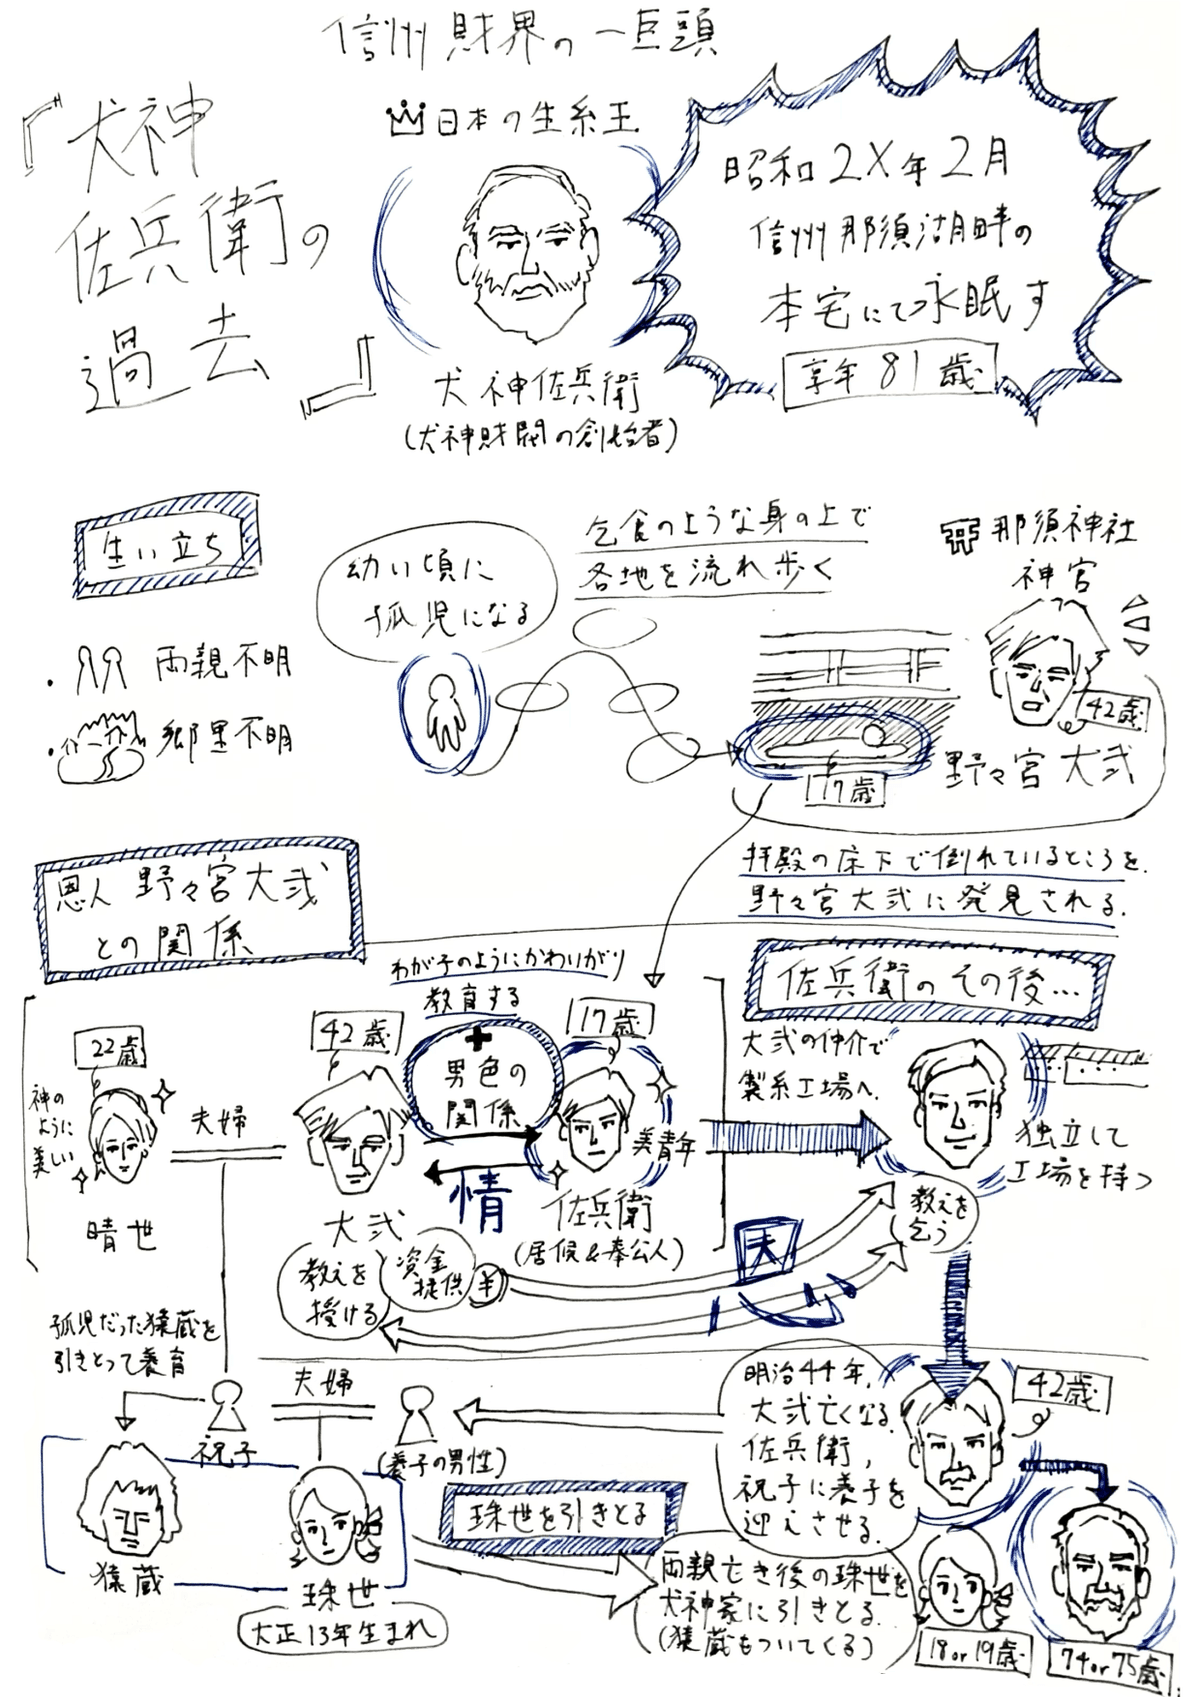 信州財界の一巨頭
『犬神
佐兵衛の
過去』
日本の生糸王
犬神佐兵衛
(犬神財閥の創始者)
昭和2X年2月
信州那須湖畔の
本宅にて永眠す
享年81歳
生い立ち
・両親不明
・郷里不明
幼い頃に
孤児になる
乞食のような身の上で
各地を流れ歩く
那須神社
神官
42歳
野々宮大弐
17歳
拝殿の床下で倒れているところを
野々宮大弐に発見される.
恩人 野々宮大弐
との関係
わが子のようにかわいがり
教育する
+
男色の
関係
22歳
神の
ように
美しい
晴世
夫婦
42歳
大弐
情
17歳
美青年
佐兵衛
(居候&奉公人)
教えを
授ける
資金
提供
¥
佐兵衛のその後…
大弐の仲介で
製糸工場へ.
独立して
工場を持つ
教えを
乞う
孤児だった猿蔵を
引きとって養育
祝子
夫婦
(養子の男性)
猿蔵
珠世
大正13年生まれ
珠世を引きとる
明治44年,
大弐亡くなる.
佐兵衛,
祝子に養子を
迎えさせる.
42歳
両親亡き後の珠世を
犬神家に引きとる.
(猿蔵もついてくる)
18or19歳
74or75歳